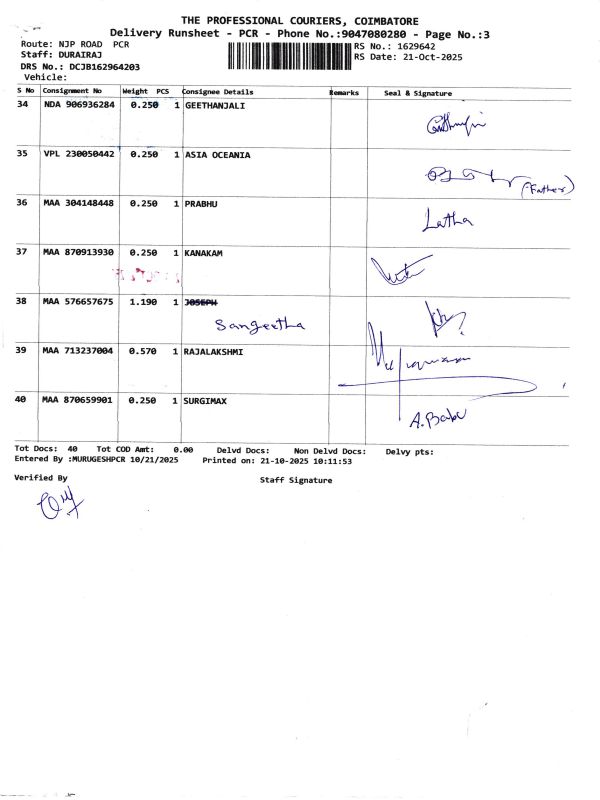 THE PROFESSIONAL COURIERS, COIMBATORE
Delivery Runsheet - PCR - Phone No.:9047080280 - Page No.:3
Route: NJP ROAD PCR RS No.: 1629642
Staff: DURAIRAJ RS Date: 21-Oct-2025
DRS No.: DCJB162964203
Vehicle:
S No Consignment No Weight PCS Consignee Details Remarks Seal & Signature
34 NDA 906936284 0.250 1 GEETHANJALI
35 VPL 230050442 0.250 1 ASIA OCEANIA
(Father)
36 MAA 304148448 0.250 1 PRABHU
Latha
37 MAA 870913930 0.250 1 KANAKAM
38 MAA 576657675 1.190 1 JOSEPH
Sangeetha
39 MAA 713237004 0.570 1 RAJALAKSHMI
40 MAA 870659901 0.250 1 SURGIMAX
A. Babu
Tot Docs: 40 Tot COD Amt: 0.00 Delvd Docs: Non Delvd Docs: Delvy pts:
Entered By :MURUGESHPCR 10/21/2025 Printed on: 21-10-2025 10:11:53
Verified By Staff Signature